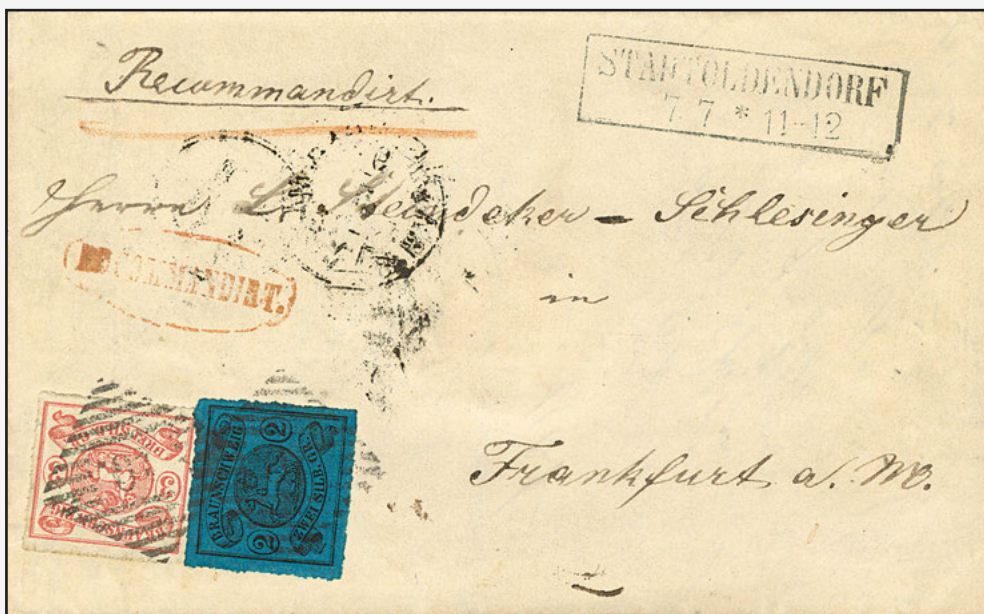 Recommandirt.
STADTOLDENDORF
7. 7 * 11-12
Herrn L. Steindeker - Schlesinger
RECOMMANDIRT.
in
Frankfurt a. M.
BRAUNSCHWEIG
DREI SILB. GR.
3
3
BRAUNSCHWEIG
ZWEI SILB. GR.
2
2